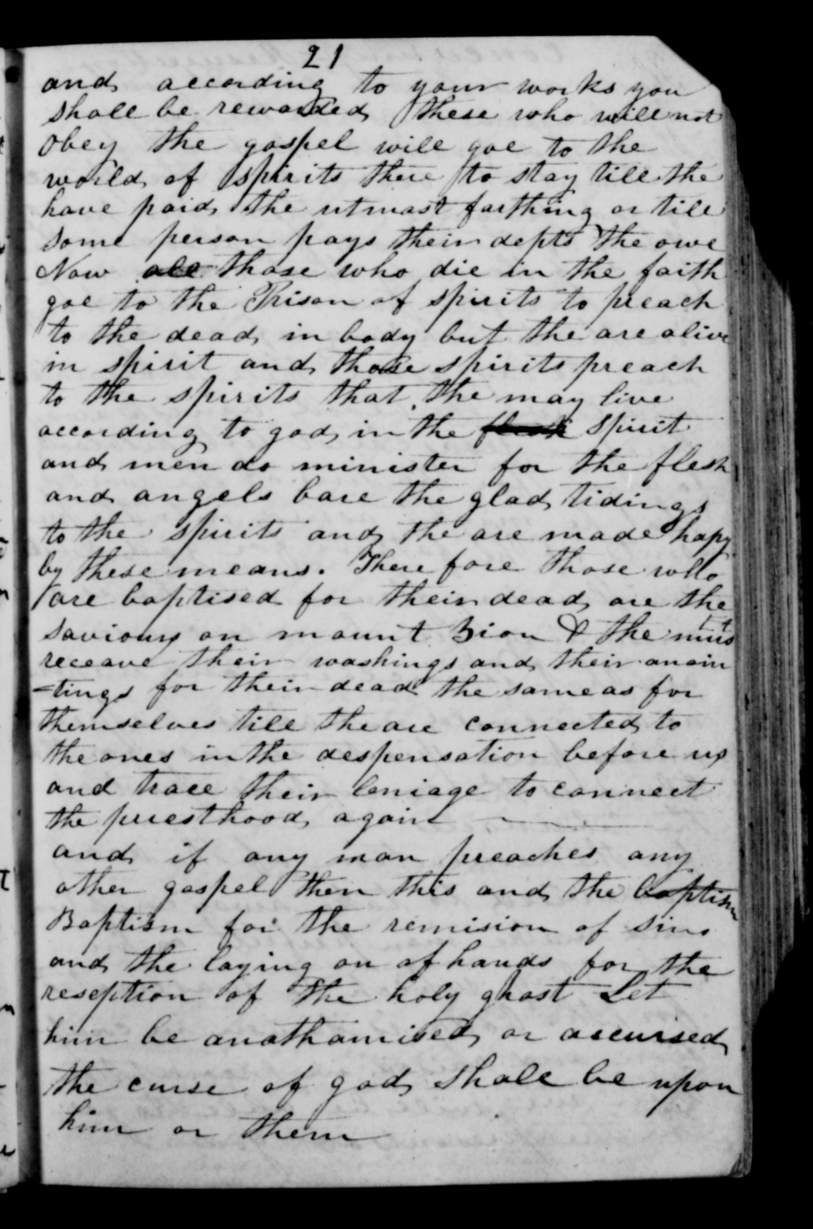 21
and according to your works you
shall be rewarded these who will not
obey the gospel will goe to the
world of spirits there to stay till the
have paid the utmast farthing or till
some person pays their depts the owe
Now all those who die in the faith
goe to the Prison of spirits to preach
to the dead in body but the are alive
in spirit and those spirits preach
to the spirits that the may live
according to god in the flesh spirit
and men do minister for the flesh
and angels bare the glad tidings
to the spirits and the are made hapy
by these means. There fore those who
are baptised for their dead are the
saviours on mount Zion & the must
receave their washings and their anoin
=tings for their dead the same as for
themselves till the are connected to
the ones in the despensation before us
and trace their leniage to connect
the priesthood again
and if any man preaches any
other gospel then this and the baptism
Baptism for the remision of sins
and the laying on of hands for the
reseption of the holy ghost Let
him be anathamised or accursed
the curse of god shall be upon
him or them